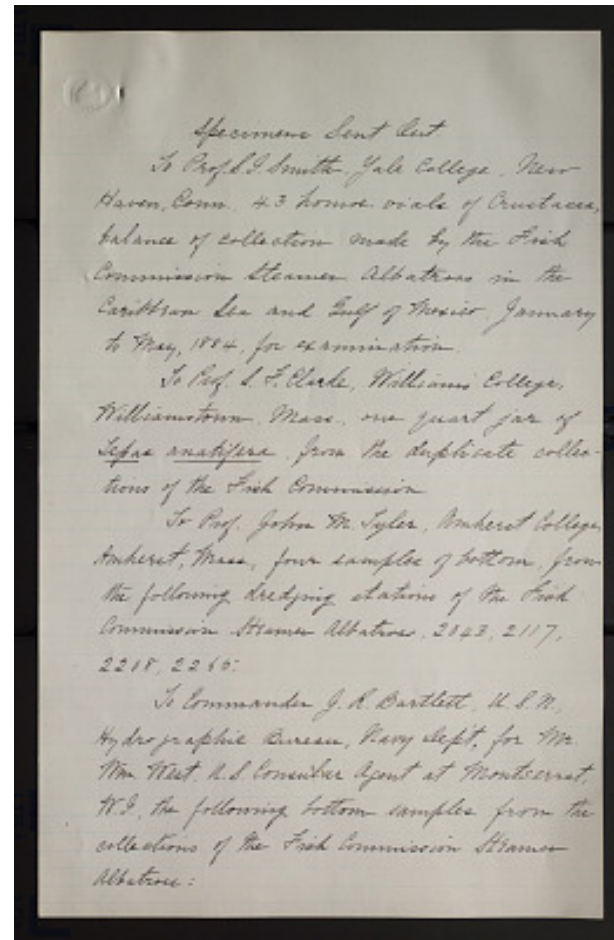 Specimens Sent Out.
To Prof. S. I. Smith, Yale College, New
Haven, Conn. 43 homoe. vials of Crustacea,
balance of collection made by the Fish
Commission Steamer Albatross in the
Caribbean Sea and Gulf of Mexico, January
to May, 1884, for examination.
To Prof. S. F. Clarke, Williams College,
Williamstown, Mass., one quart jar of
Lepas anatifera, from the duplicate collec-
tions of the Fish Commission
To Prof. John M. Tyler, Amherst College,
Amherst, Mass., four samples of bottom, from
the following dredging stations of the Fish
Commission Steamer Albatross, 2043, 2117,
To Commander J. R. Bartlett, U.S.N.,
Hydrographic Bureau, Navy Dept., for Mr.
Wm. West, U.S. Consular Agent at Montserrat,
W.I., the following bottom samples from the
collections of the Fish Commission Steamer
Albatross: